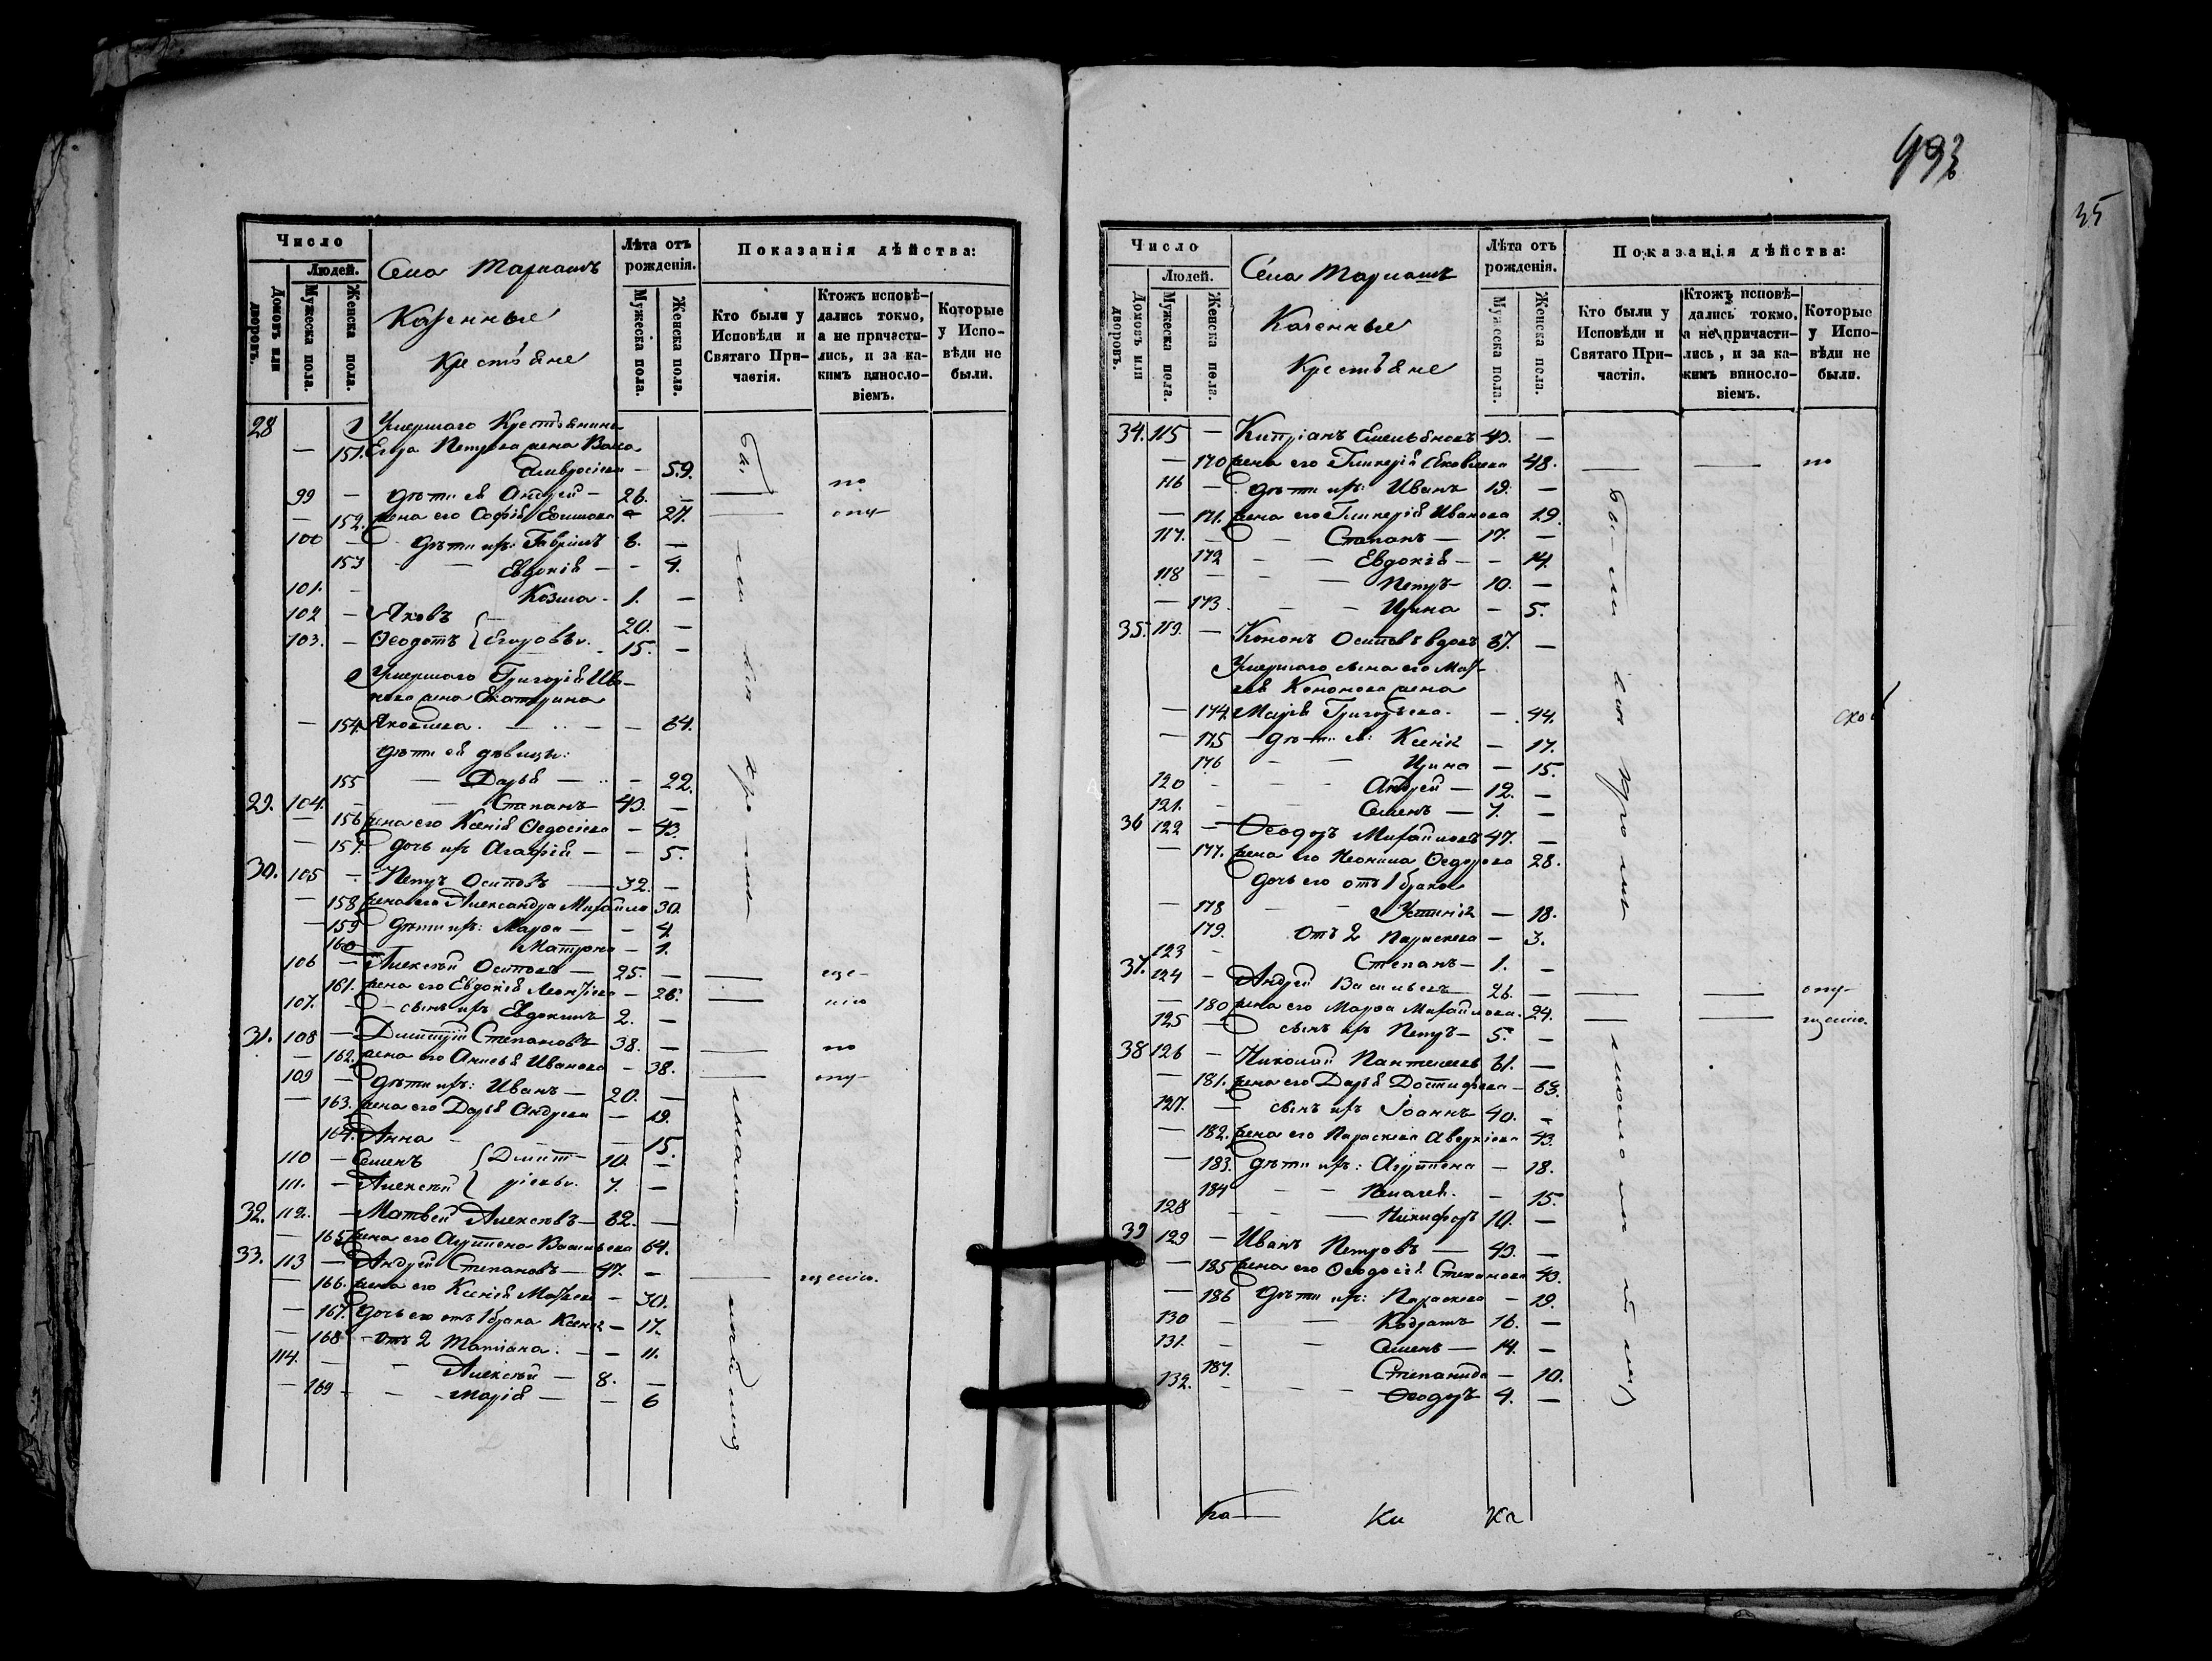 Число
Людей.
Домовъ или дворовъ.
Мужеска пола.
Женска пола.
Села
Казенные
Крестьяне
Лѣта отъ рожденія.
Мужеска пола
Женска пола.
Показанія дѣйства:
Кто были у Исповѣди и Святаго Причастія.
Ктожъ исповѣдались токмо, а не причастились, и за какимъ винословіемъ.
Которые у Исповѣди не были.
28 Умершаго Крестьянина
— 151. Егора Петрова жена
— 59.
99 — дѣти ея Андрей — 26. —
— 152. жена его Софія — 27.
100 — дѣти ихъ: Гавріилъ 6. —
153 — Евдокія — — 4.
101. — Козма — 1. —
102 — Яковъ 20. —
103. — Ѳеодотъ Егоровы. 15. —
Умершаго Григорія Ива-
нова жена Екатерина
— 154. Яковлева. — — 64.
дѣти ея дѣвицы:
155 — Дарья — — 22.
29. 104. — Степанъ 43. —
— 156 жена его Ксенія Ѳедосіева — 43.
— 157. дочь ихъ Агафія — — 5.
30. 105 — Петръ Осиповъ — 32. —
— 158 жена его Александра Михайлова 30.
— 159 дѣти ихъ: Марѳа — — 4
160 Матрона — 1.
106 — Алексѣй Осиповъ — 25. —
161. жена его Евдокія Леонтіева — 26.
107. — сынъ ихъ Евдокимъ 2. —
31. 108 — Димитрій Степановъ 38. —
— 162. жена его Анисья Иванова — 38.
109 — дѣти ихъ: Иванъ — 20. —
— 163. жена его Дарья Андреева — 19.
164. Анна — — 15.
110 — Семенъ Димит- 10. —
111. — Алексѣй ріевы. 7. —
32. 112. — Матвей Алексѣевъ — 62. —
— 165 жена его Агрипена Васильева 64.
33. 113 — Андрей Степановъ — 47. —
— 166. жена его Ксенія — 30.
— 167. дочь его отъ 1 брака Ксенія — 17.
— 168 — отъ 2 Татіана. — — 11.
114. — Алексѣй — 8. —
— 169 — Марія — — 6
Были
993
35
Число
Людей.
Домовъ или дворовъ.
Мужеска пола.
Женска пола.
Села
Казенные
Крестьяне
Лѣта отъ рожденія.
Мужеска пола.
Женска пола.
Показанія дѣйства:
Кто были у Исповѣди и Святаго Причастія.
Ктожъ исповѣдались токмо, а не причастились, и за какимъ винословіемъ.
Которые у Исповѣди не были.
34. 115 — Кипріанъ Емельяновъ 43. —
— 170 жена его Гликерія Яковлева 48.
116 — дѣти ихъ: Иванъ 19. —
— 171. жена его Гликерія Иванова 19.
117. — Степанъ — 17. —
172 — — Евдокія — — 14.
118 — — Петръ 10. —
— 173. — — Ирина — 5.
35. 119. — Кононъ Осиповъ вдовъ 67. —
Умершаго сына его
Кононова жена
— 174. Марья Григорьева. — 44.
— 175 — дѣти ея: Ксенія — 17.
176 — — Ирина — 15.
120 — — Андрей — 12. —
121. — — Семенъ — 7. —
36 122 — Ѳеодоръ Михайловъ 47. —
— 177. жена его Неонила Ѳедорова 28.
дочь его отъ 1 брака
— 178 — Устинія — 18.
179. отъ 2 Параскева — 3.
123 — Степанъ — 1. —
37. 124 — Андрей Васильевъ 26. —
— 180 жена его Марѳа Михайлова. 24.
125 — сынъ ихъ Петръ — 5. —
38 126 — Николай Пантелеевъ 61. —
— 181. жена его Дарья — 63.
127. — сынъ ихъ Іоаннъ 40. —
— 182. жена его Параскева Аверкіева 43.
— 183. дѣти ихъ: Агрипена — 18.
184 — — Пелагея. — 15.
128 — — Никифоръ 10. —
39 129 — Иванъ Петровъ — 43. —
— 185 жена его Ѳеодосія Степанова 43.
— 186 дѣти ихъ: Параскева — 19.
130 — Кодратъ 16. —
131. — — Семенъ — 14. —
187. Степанида — 10.
132. — — — Ѳеодоръ 4. —